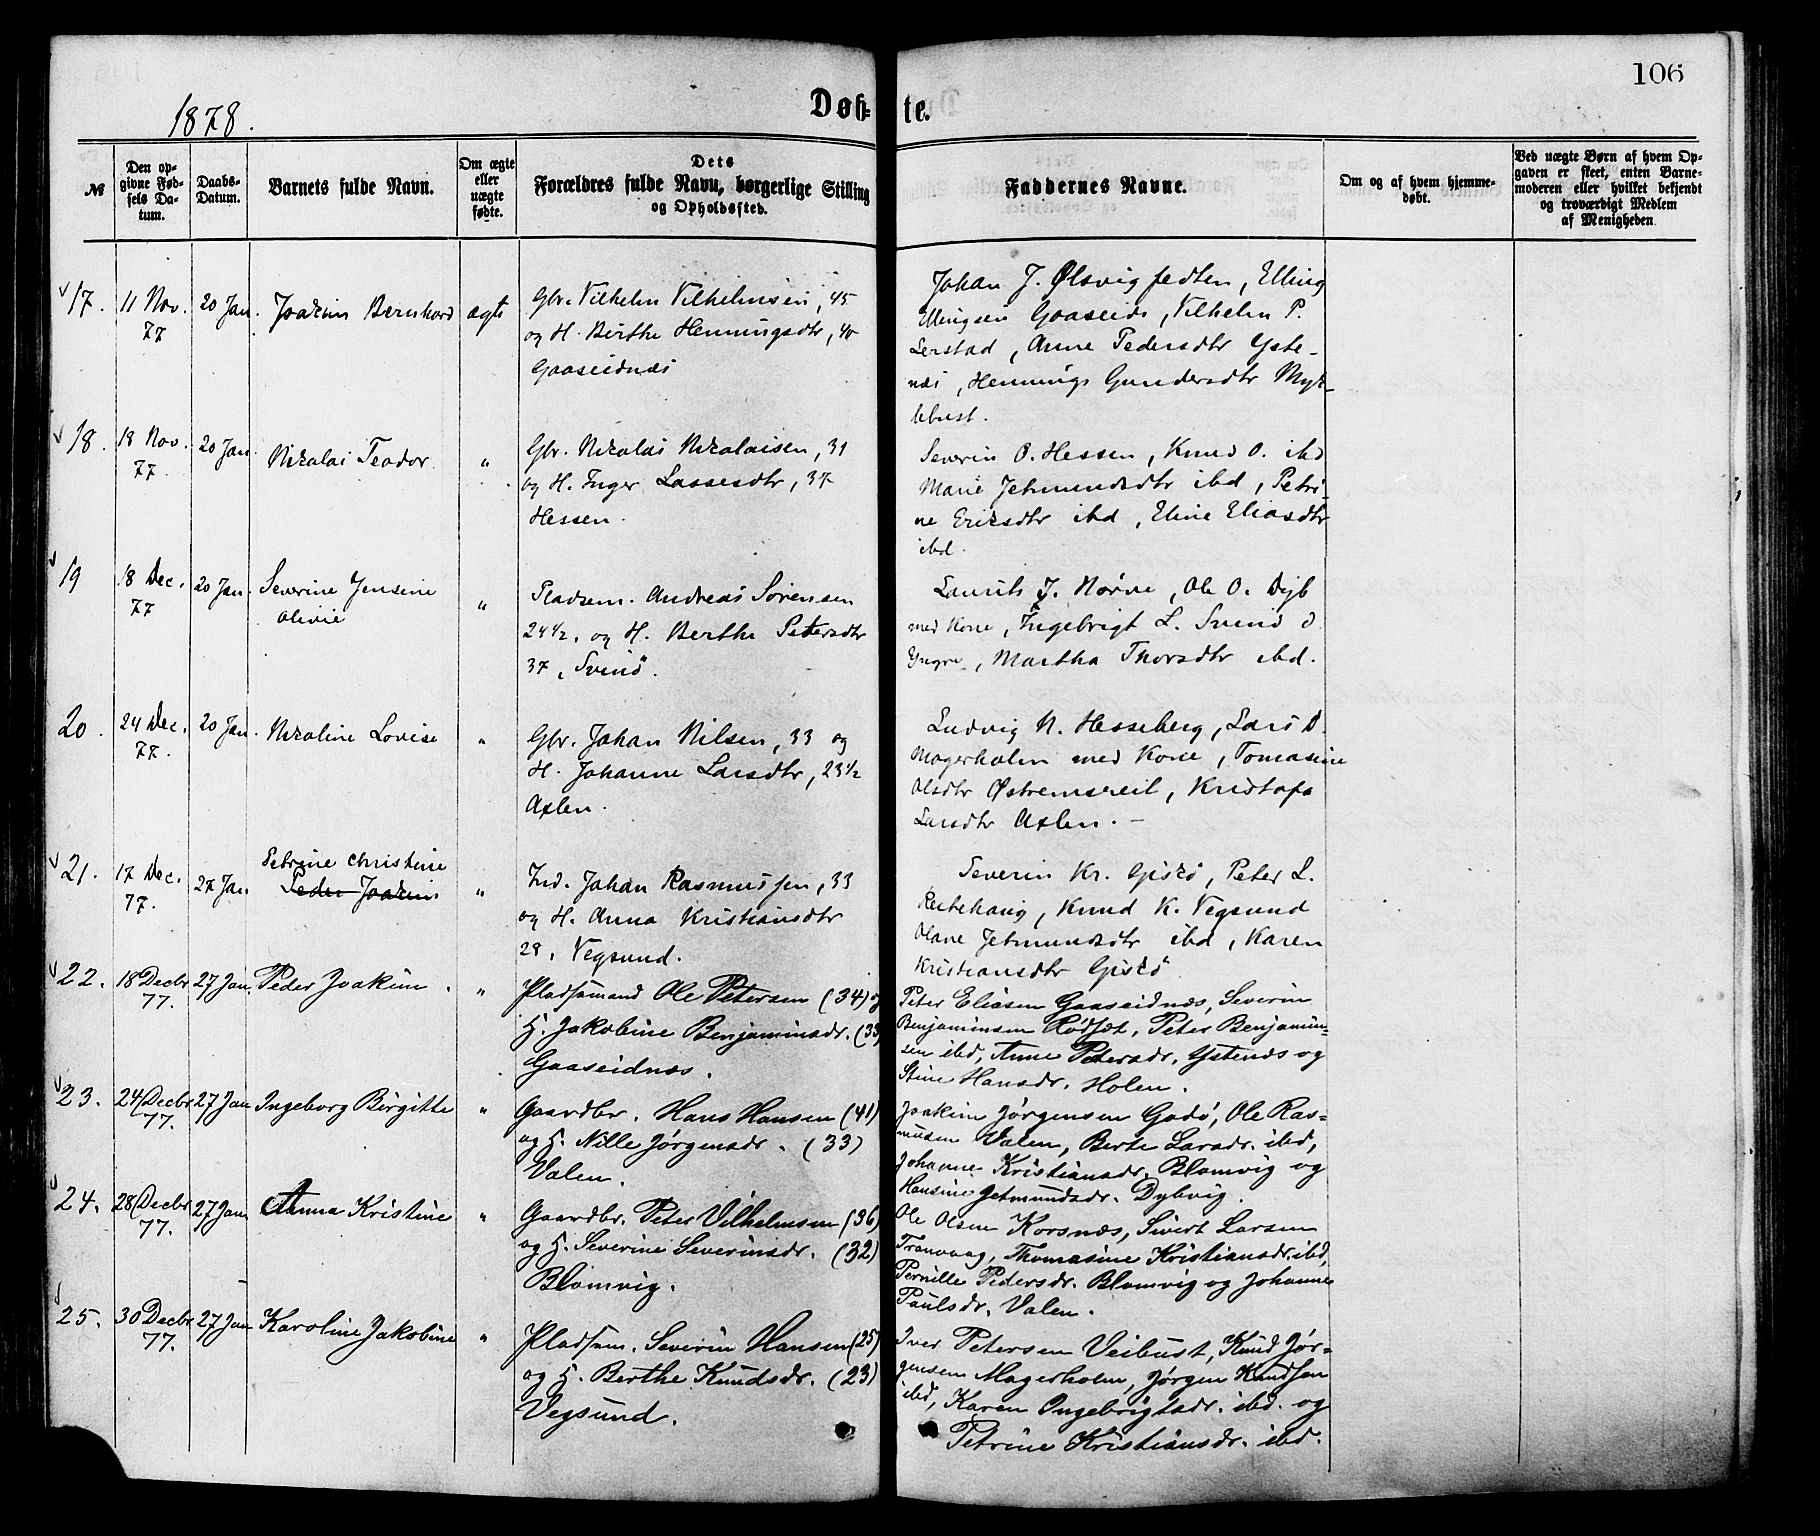 106
1878.
Døb-
te.
№
Den op-
givne Fød-
sels Da-
tum.
Daabs-
Datum.
Barnets fulde Navn.
Om ægte
eller
uægte
fødte.
Dets
Forældres fulde Navn, borgerlige Stilling
og Opholdssted.
Faddernes Navne.
Om og af hvem hjemme-
døbt.
Ved uægte Børn af hvem Op-
gaven er skeet, enten Barne-
moderen eller hvilket bekjendt
og troværdigt Medlem
af Menigheden
17. 11 Nov. 77 20 Jan. Joakim Bernhard ægte
Gbr. Vilhelm Vilhelmsen, 45
og H. Birthe Henningsdtr, 40
Gaaseidnæs
Johan J. Ølsvigfedten, Elling
Ellingsen Gaaseide, Vilhelm P.
Lerstad, Anne Pedersdtr Yste-
næs, Hennings Gundersdtr Myk-
lebust.
18. 18 Nov. 77 20 Jan. Nikolai Teodor "
Gbr. Nikolai Nikolaisen, 31
og H. Inger Lassesdtr, 37
Hessen.
Severin O. Hessen, Knud O. ibd
Marie Jetmundsdtr ibd, Petri-
ne Eriksdtr ibd, Eline Eliasdtr
ibd.
19 18 Dec. 77 20 Jan. Severine Jensine
Olivie "
Pladsem. Andreas Sørensen
24½, og H. Berthe Petersdtr
37, Svinö.
Laurits J. Nørve, Ole O. Dyb
med Kone, Ingebrigt L. Svinö d.
Yngre, Martha Thorsdtr ibd.
20. 24 Dec. 77. 20 Jan. Nikoline Lovise "
Gbr. Johan Nilsen, 33 og
H. Johanne Larsdtr, 23½
Axlen.
Ludvig N. Hesseberg, Lars D.
Magerholm med Kone, Tomasine
Olsdtr Østremsreil, Kristofa
Larsdtr Axlen. -
21. 17 Dec. 77. 27 Jan. Petrine Christine
Peder Joakim "
Ind. Johan Rasmussen, 33
og H. Anna Kristiansdtr
28, Vegsund.
Severin Kr. Giskö, Peter L.
Reitehaug, Knud K. Vegsund
Olane Jetmundsdtr ibd, Karen
Kristiansdtr Giskö
22. 18 Decbr 77. 27 Jan. Peder Joakim. "
Pladsmand Ole Petersen (34) og
H. Jakobine Benjaminsdr. (33
Gaaseidnæs.
Peter Eliasen Gaaseidnæs, Severin
Benjaminsen Rødset, Peter Benjamin-
sen ibd, Anne Petersdr. Ystenæs og
Stine Hansdr. Holen.
23. 24 Decbr 77. 27 Jan Ingeborg Birgitte "
Gaardbr. Hans Hansen (41)
og H. Nille Jørgensdr. (33)
Valen.
Joakim Jørgensen Godö, Ole Ras-
musen Valen, Berte Larsdr. ibd,
Johanne Kristiansdr. Blomvig og
Hansine Jetmundsdr. Dybvig.
24. 28 Decbr 77. 27 Jan Anna Kristine "
Gaardbr. Peter Vilhelmsen (36)
og H. Severine Severinsdr. (32)
Blomvig.
Ole Olsen Korsnæs, Sivert Larsen
Tranvaag, Thomasine Kristiansdr. ibd,
Pernille Pedersdr. Blomvig og Johanne
Paulsdr. Valen.
25. 30 Decbr 77. 27 Jan Karoline Jakobine "
Pladsm. Severin Hansen (25)
og H. Berthe Knudsdr. (23)
Vegsund.
Iver Petersen Veibust, Knud Jør-
gensen Magerholm, Jørgen Knudsen
ibd, Karen Ongebrigtsdr. ibd. og
Petrine Kristiansdr. ibd.